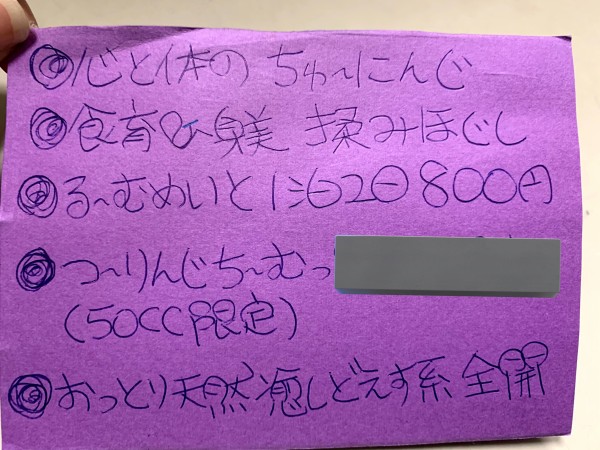 ◎心と体の ちゅ〜にんじ
◎食育&身美 揉みほぐし
◎る〜むめいと 1泊2日800円
◎つ〜りんじち〜むっ
(50CC限定)
◎おっとり天然癒しどえす系 全開